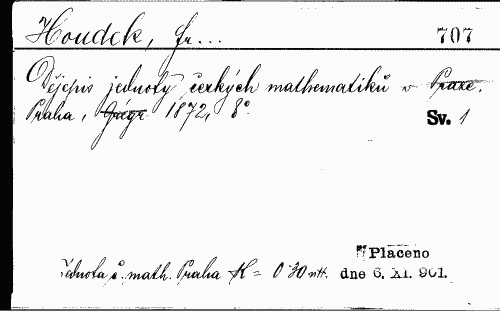 Houdek, Fr... 707
Dějepis jednoty českých mathematiků v Praze.
Praha, Grégr 1872, 8°. Sv. 1
Placeno
Jednota č. math. Praha K = 0·30 dne 6. XI. 901.